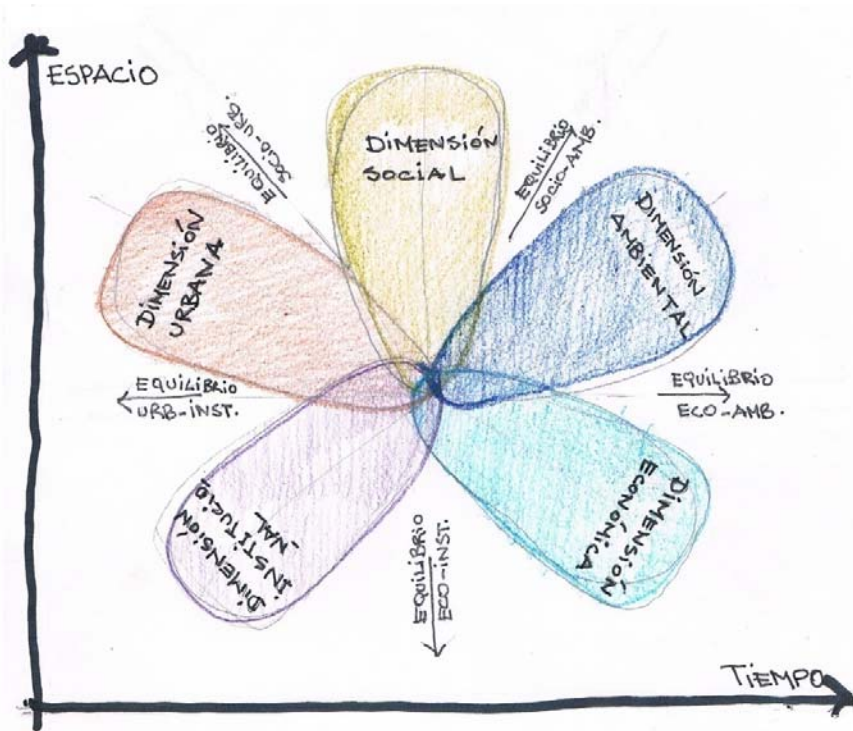 ESPACIO
EQUILIBRIO
SOCIO-URB.
DIMENSIÓN
SOCIAL
EQUILIBRIO
SOCIO-AMB.
DIMENSIÓN
URBANA
DIMENSIÓN
AMBIENTAL
EQUILIBRIO
URB-INST.
EQUILIBRIO
ECO-AMB.
DIMENSIÓN
INSTITUCIO_
_NAL
EQUILIBRIO
ECO-INST.
DIMENSIÓN
ECONÓMICA
TIEMPO